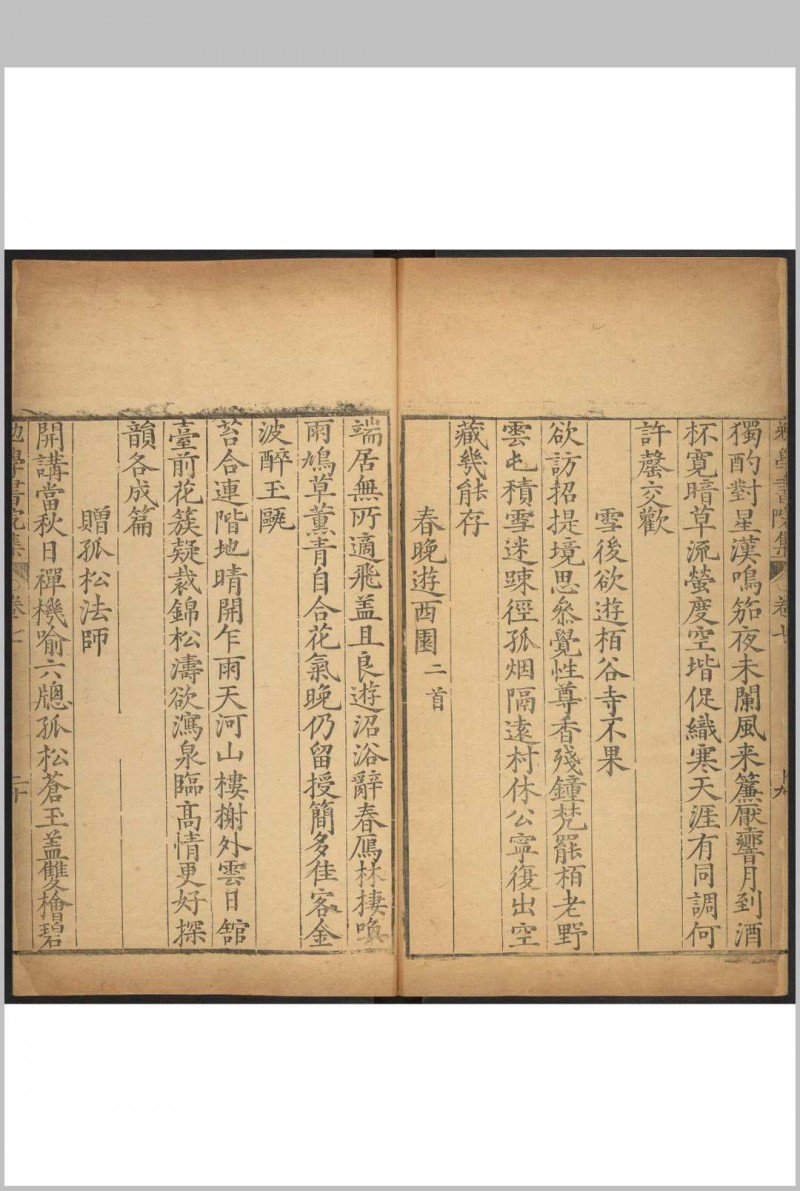 獨酌對星漢鳴笳夜未闌風来簾厭響月到酒
杯寛暗草流螢度空堦促織寒天涯有同調何
許罄交歡
雪後欲遊栢谷寺不果
欲訪招提境思叅覺性尊香殘鐘梵罷栢老野
雲屯積雪迷踈徑孤烟隔遠村休公寧復出空
藏幾能存
春晚遊西園二首
端居無所適飛盖且良遊沼浴辭春鴈林棲喚
雨鳩草薰青自合花氣晚仍留授簡多佳客金
波醉玉甌
苔合連階地晴開乍雨天河山樓榭外雲日舘
臺前花簇疑裁錦松濤欲瀉泉臨高情更好探
韻各成篇
贈孤松法師
開講當秋日禪機喻六牕孤松蒼玉盖雙檜碧